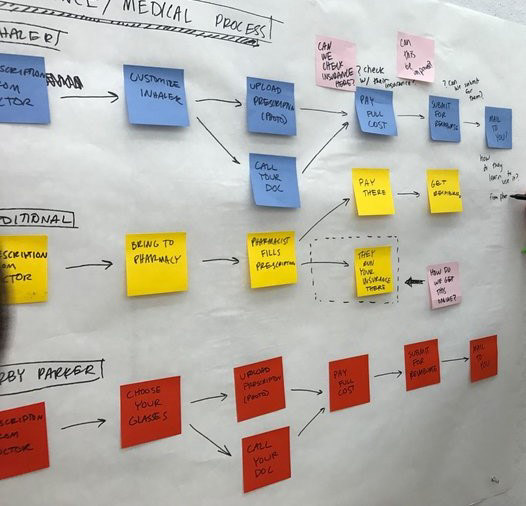 /MEDICAL PROCESS
HALER
SCRIPTION
FROM
CTOR
CUSTOMIZE
INHALER
UPLOAD
PRESCRIPTION
(PHOTO)
CALL
YOUR
DOC
CAN
WE
CHECK
INSURANCE
HERE?
? check
w/ their
insurance?
PAY
FULL
COST
CAN
THIS
BE
? can we submit
for
them?
SUBMIT
FOR
MAIL
TO
YOU!
how
do they
learn to
use it?
from
DITIONAL
SCRIPTION
OM
CTOR
BRING TO
PHARMACY
PHARMACIST
FILLS
PRESCRIPTION
PAY
THERE
GET
THEY
RUN
YOUR
INSURANCE
THERE
HOW DO
WE GET
THIS
RBY PARKER
SCRIPTION
OM
CTOR
CHOOSE
YOUR
GLASSES
UPLOAD
PRESCRIPTION
(PHOTO)
CALL
YOUR
DOC
PAY
FULL
COST
SUBMIT
FOR
MAIL
TO
YOU